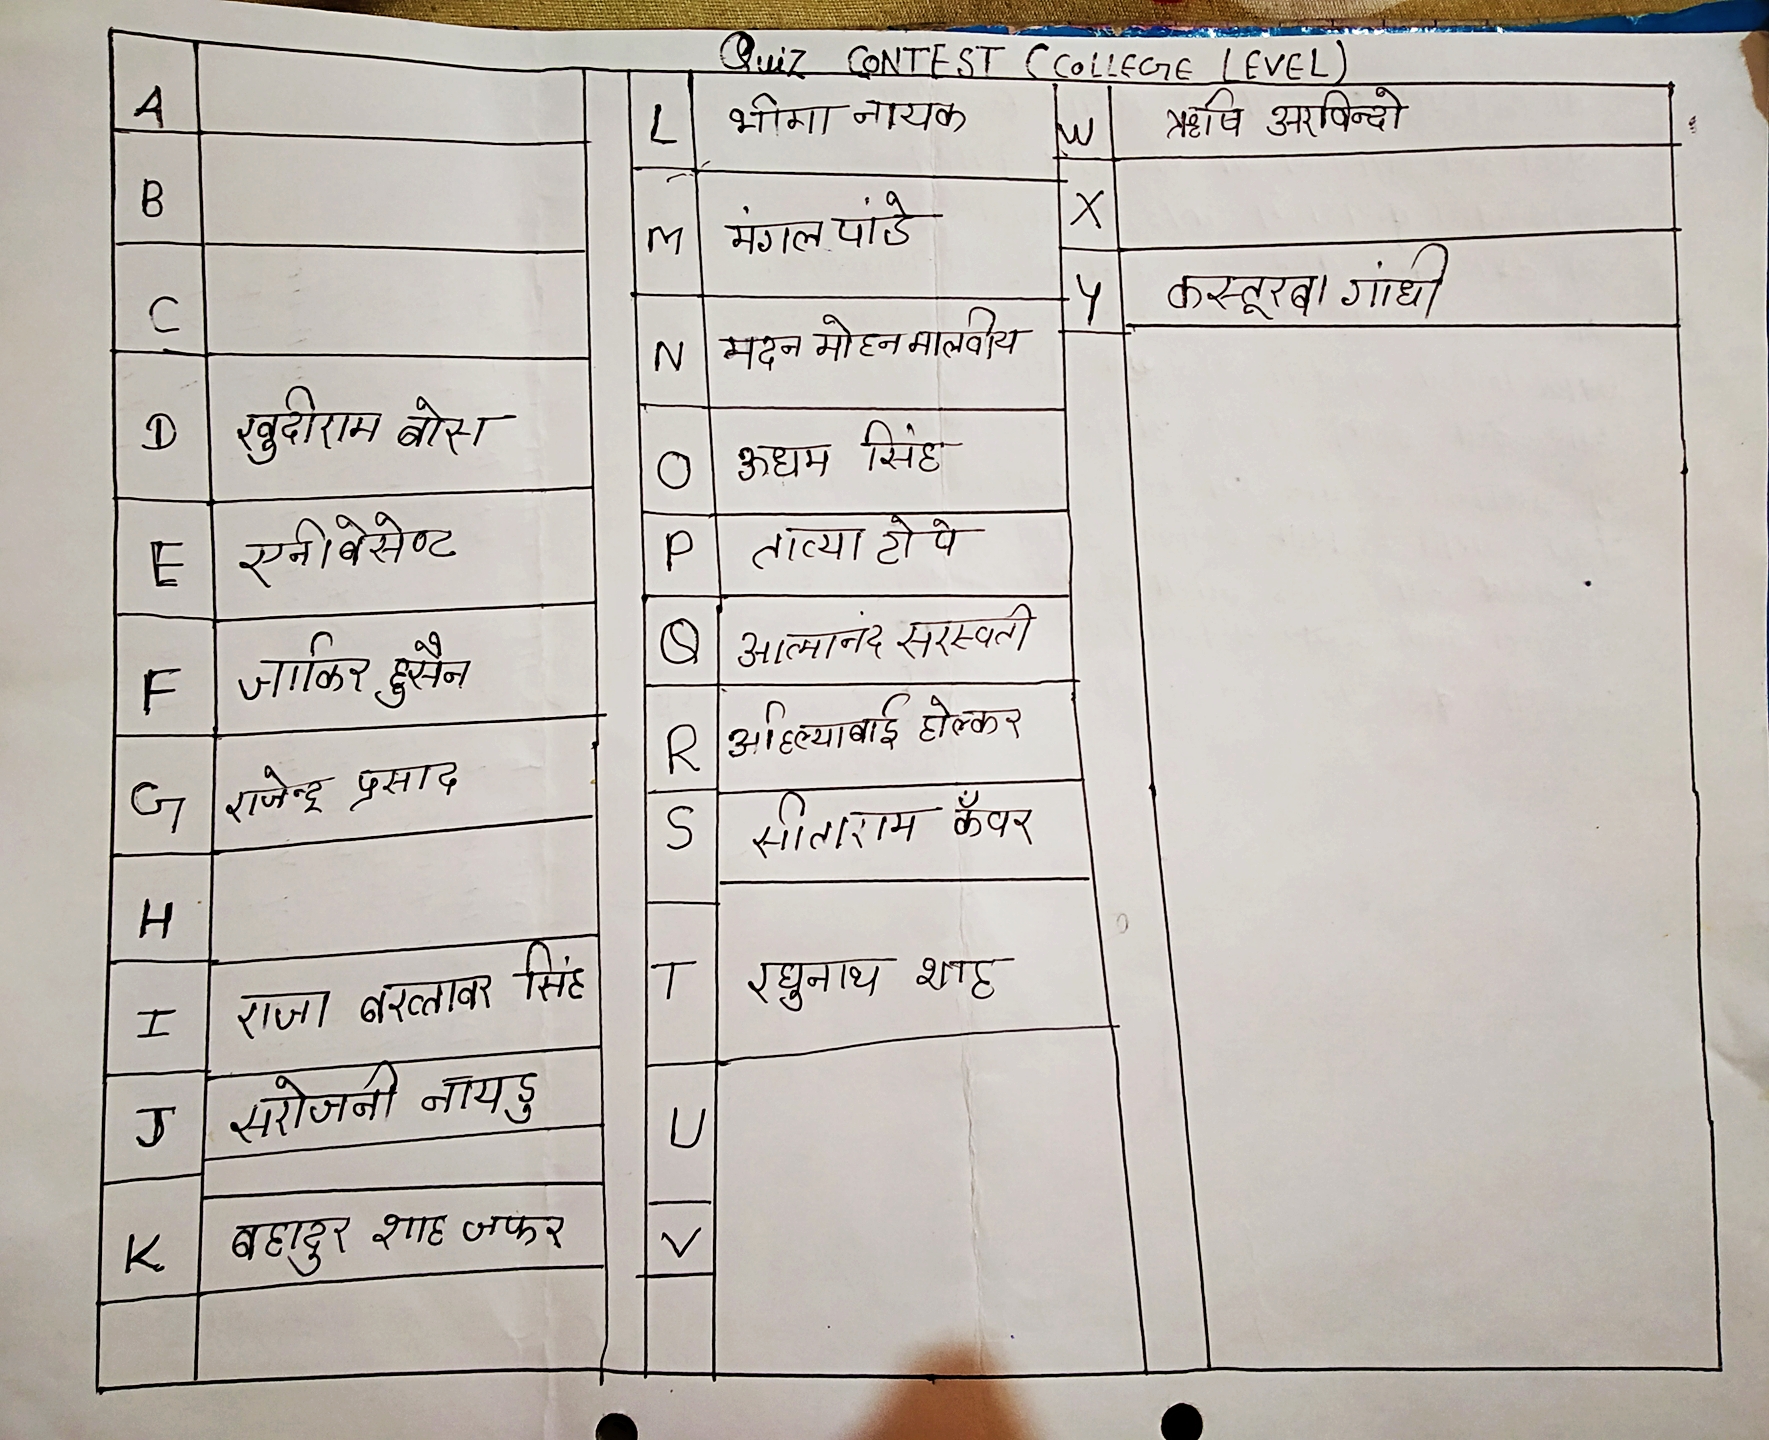 Quiz CONTEST (COLLEGE LEVEL)
A
B
C
D खुदीराम बोस
E एनी बेसेण्ट
F जाकिर हुसैन
G राजेन्द्र प्रसाद
H
I राजा बख्तावर सिंह
J सरोजनी नायडु
K बहादुर शाह जफर
L भीमा नायक
M मंगल पांडे
N मदन मोहन मालवीय
O ऊधम सिंह
P तात्या टोपे
Q आत्मानंद सरस्वती
R अहिल्याबाई होल्कर
S सीताराम कँवर
T रघुनाथ शाह
U
V
W ऋषि अरविन्दो
X
Y कस्तूरबा गांधी